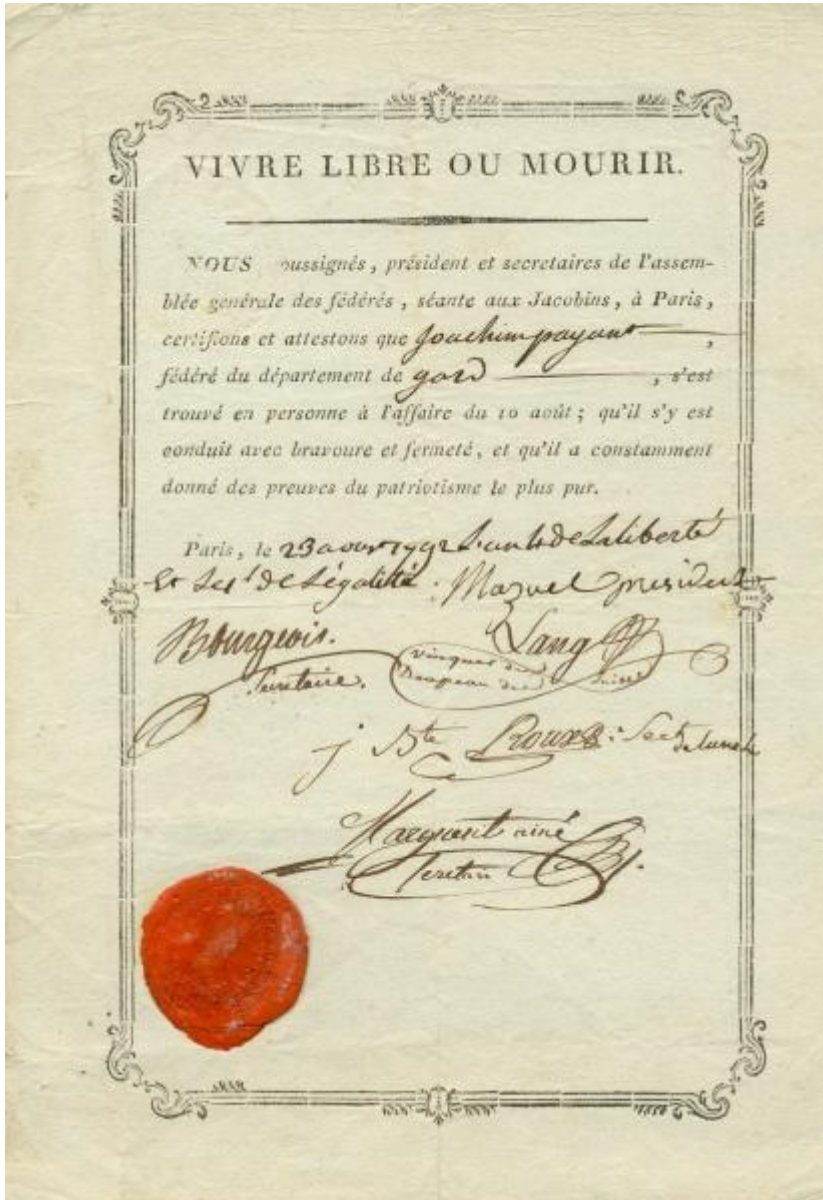 VIVRE LIBRE OU MOURIR.
NOUS oussignés, président et secretaires de l'assem-
blée générale des fédérés, séante aux Jacobins, à Paris,
certifions et attestons que Joachim payant,
fédéré du département de gard, s'est
trouvé en personne à l'affaire du 10 août; qu'il s'y est
conduit avec bravoure et fermeté, et qu'il a constamment
donné des preuves du patriotisme le plus pur.
Paris, le 23 aout 1792 L'an 4 de La liberté
Et Le 1 de Légalité. Mazuel president
Bourgeois. Lang
Secretaire. Vainqueur du
Drapeau des Suisses
j Bte Roux
ainé